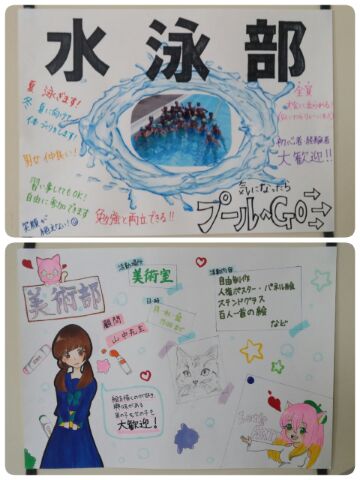 水泳部
夏 泳ぎます!
冬 夏に向けて
体づくりします!
男女仲良い!
習い事してもOK!
自由に参加できます
笑顔が
絶えない!
勉強と両立できる!!
全員
初心者・経験者
大歓迎!!
気になったら
プールへGO
美術部
活動場所
美術室
活動内容
自由制作
人権ポスター・パネル絵
ステンドグラス
百人一首の絵
など
日時
顧問
絵を描くのが好き
興味がある
男の子も女の子も
大歓迎!
Let's
ART